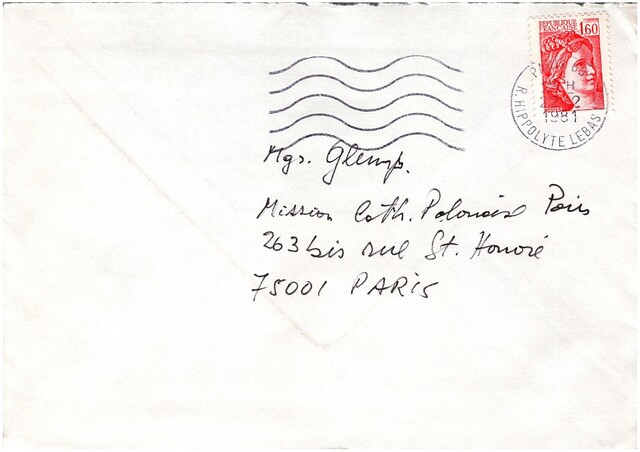 REPUBLIQUE
FRANCAISE 1,60
1981
R. HIPPOLYTE LEBAS
Mgr. Glemp.
Mission Cath. Polonaise Paris
263 bis rue St. Honoré
75001 PARIS